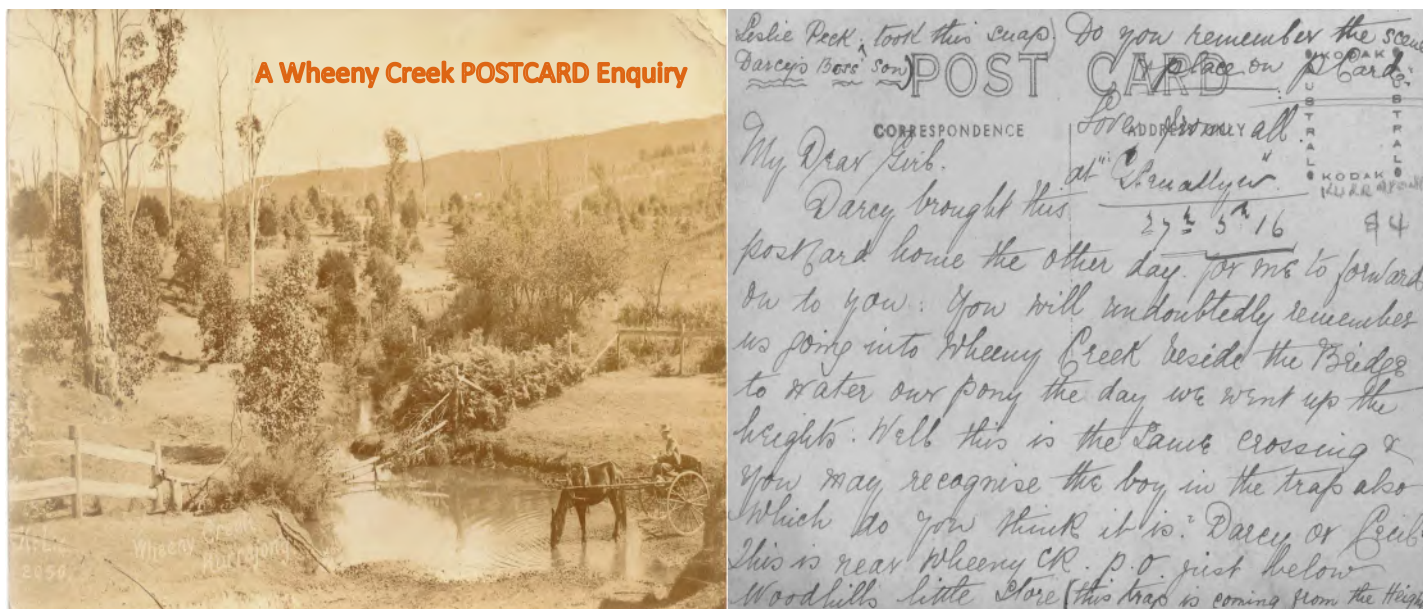 A Wheeny Creek POSTCARD Enquiry
Wheeny Creek
Kurrajong
2050
Leslie Peck took this snap) Do you remember the scene
Darcy's Boss' Son)
& place on p Card
POST CARD
CORRESPONDENCE
ADDRESS ONLY
KODAK
AUSTRAL
AUSTRAL
KODAK
Love from all
at
27th 5th 16
84
My Dear Girl.
Darcy brought this
postcard home the other day. for me to forward
on to you. You will undoubtedly remember
us going into Wheeny Creek beside the Bridge
to water our pony the day we went up the
heights. Well this is the same crossing &
you may recognise the boy in the trap also
which do you think it is? Darcy or Cecil
This is near Wheeny CK. P.O just below
Woodhills little store (this trap is coming from the Heig